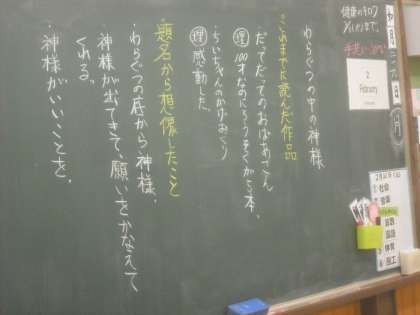 わらぐつの中の神様
これまでに読んだ作品
・だってだってのおばあさん
理 100才なのにろうそくが5本、
・ちいちゃんのかげおくり
理 感動した。
・題名から想像したこと
・わらぐつの底から神様、
・神様が出てきて、願いをかなえて
くれる。
・神様がいいことを、
2
February
社会
音楽
算数
国語
体育